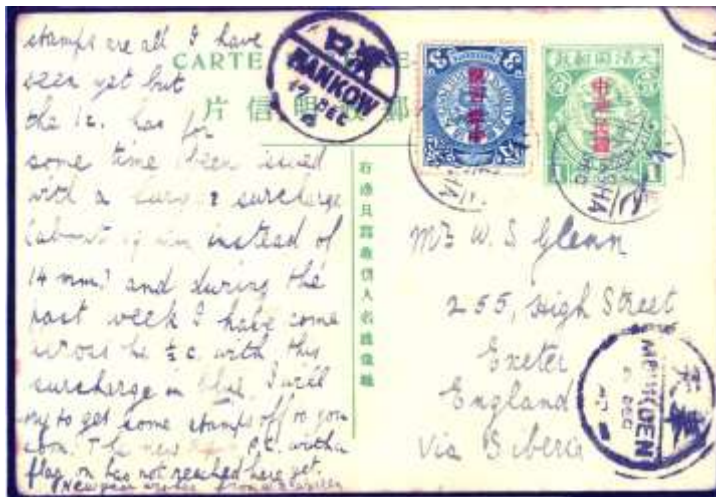 stamps are all I have
seen yet but
the 1c. has for
some time been issued
with a surcharge
instead of
14 mm) and during the
past week I have come
across the ½ c. with this
surcharge in blue. I will
try to get some stamps off to you
soon. The new P.C. with a
flag on has not reached here yet.
CARTE
片信明郵
漢口
HANKOW
17 DEC
大清國郵政
中華民國
1
右邊只寫收信人名姓住址
Mr W. S. Glenn
255, High Street
Exeter
England
Via Siberia
奉天
MUKDEN
DEC